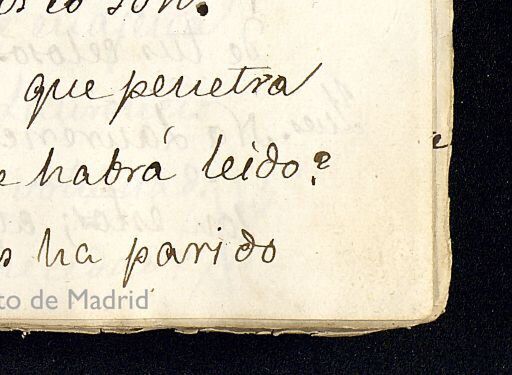 es lo son.
que penetra
e habrá leido?
s ha parido
to de Madrid